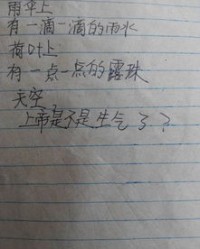 雨伞上
有一滴一滴的雨水
荷叶上
有一点一点的露珠
天空
上帝是不是生气了？